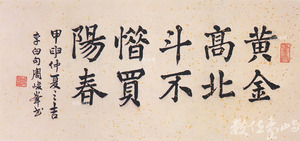 黄金
髙北
斗不
惜買
陽春
甲申仲夏之吉
李白句周峯书